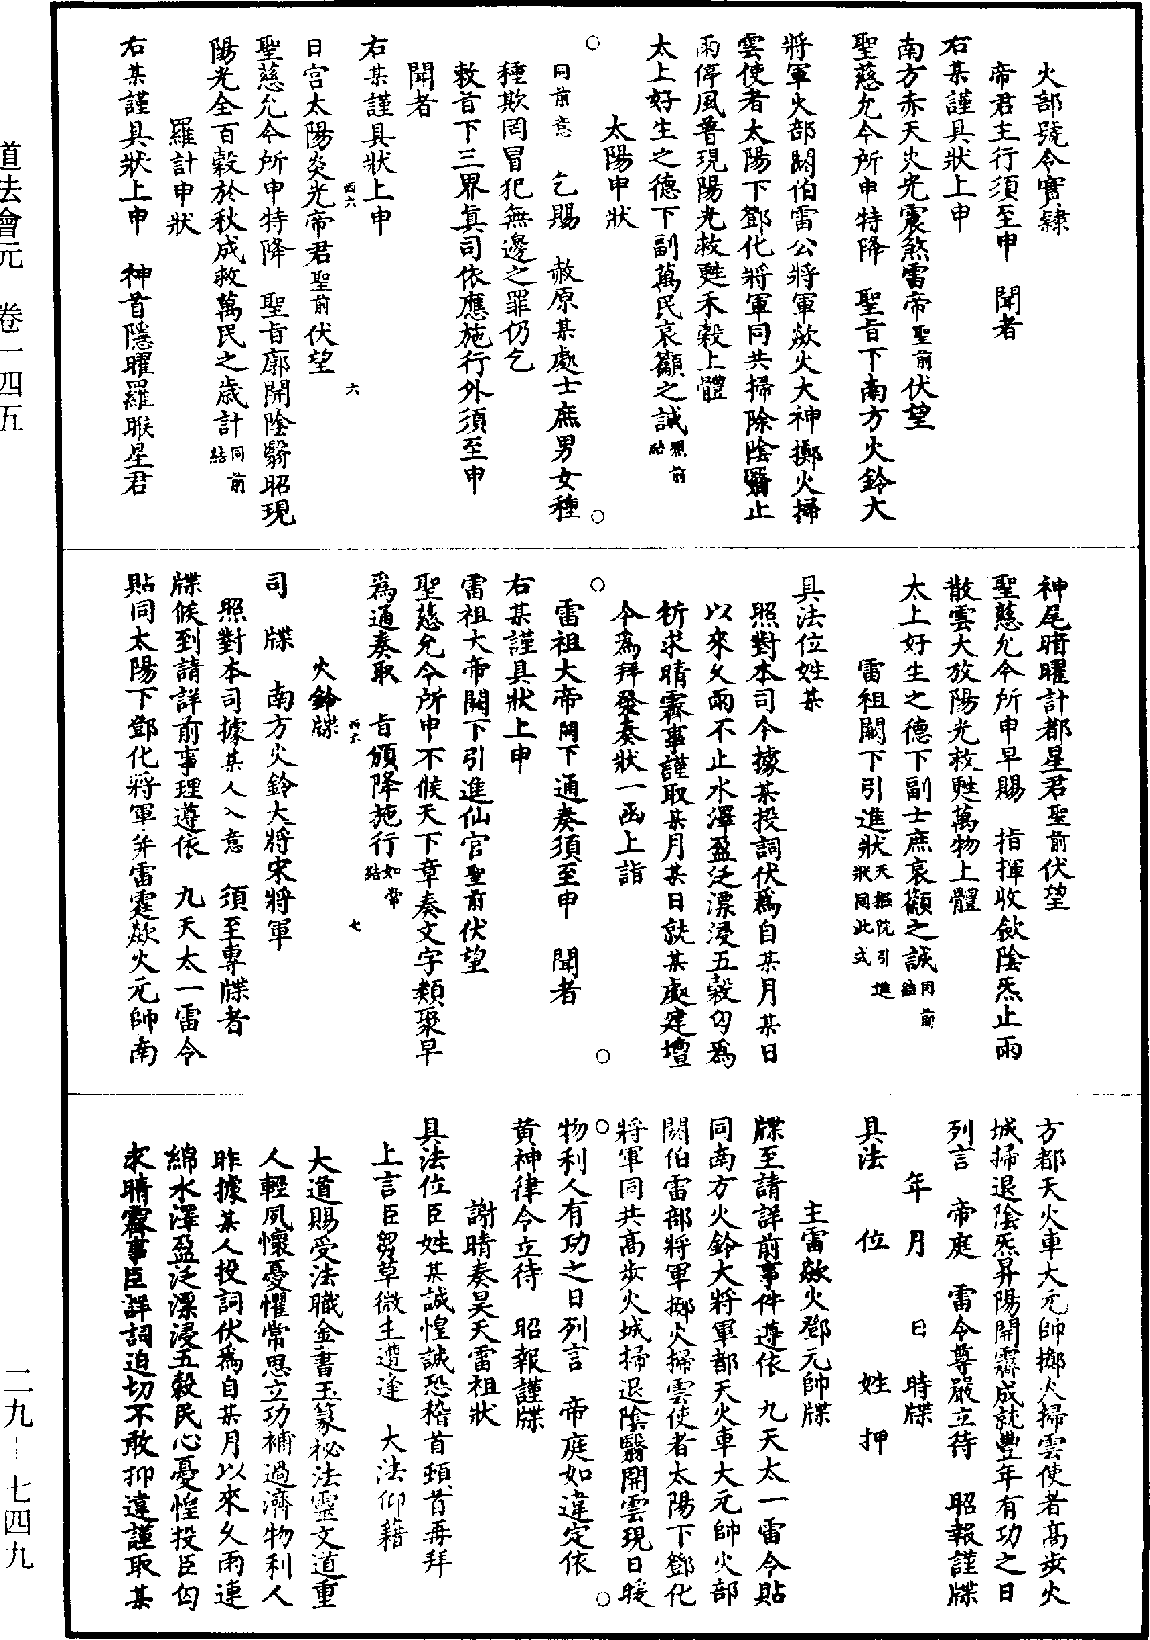 火部號令實隸
帝君主行須至申　聞者
右某謹具狀上申
南方赤天火光震煞雷帝聖前伏望
聖慈允今所申特降　聖旨下南方火鈴大
將軍火部閼伯雷公將軍歘火大神擲火掃
雲使者太陽下鄧化將軍同共掃除陰翳止
雨停風普現陽光救甦禾穀上體
太上好生之德下副萬民哀籲之誠照前結
太陽申狀
○　○
同前意　乞賜　赦原某處士庶男女種
種欺罔冒犯無邊之罪仍乞
敕旨下三界真司依應施行外須至申
聞者
右某謹具狀上申
四六　六
日宮太陽炎光帝君聖前伏望
聖慈允今所申特降　聖旨廓開陰翳昭現
陽光全百穀於秋成救萬民之歲計同前結
羅計申狀
右某謹具狀上申　神首隱曜羅睺星君
神尾暗曜計都星君聖前伏望
聖慈允今所申早賜　指揮收斂陰炁止雨
散雲大放陽光救甦萬物上體
太上好生之德下副士庶哀籲之誠同前結
雷祖闕下引進狀天樞院引進狀同此式
具法位姓某
照對本司今據某投詞伏為自某月某日
以來久雨不止水澤盈泛漂浸五穀匄為
祈求晴霽事謹取某月某日就某處建壇
今為拜發奏狀一函上詣
○　○
雷祖大帝闕下通奏須至申　聞者
右某謹具狀上申
雷祖大帝闕下引進仙官聖前伏望
聖慈允今所申不候天下章奏文字類聚早
為通奏取　旨頒降施行如常結
四六　七
火鈴牒
司　牒　南方火鈴大將宋將軍
照對本司據某人入意　須至專牒者
牒候到請詳前事理遵依　九天太一雷令
貼同太陽下鄧化將軍并雷霆歘火元帥南
方都天火車大元帥擲火掃雲使者高步火
城掃退陰炁昇陽開霽成就豐年有功之日
列言　帝庭　雷令尊嚴立待　昭報謹牒
年　月　日　時牒
具法　位　姓　押
主雷歘火鄧元帥牒
牒至請詳前事件遵依　九天太一雷令貼
同南方火鈴大將軍都天火車大元帥火部
閼伯雷部將軍擲火掃雲使者太陽下鄧化
將軍同共高步火城掃退陰翳開雲現日暖
○　○
物利人有功之日列言　帝庭如違定依
黃神律令立待　昭報謹牒
謝晴奏昊天雷祖狀
具法位臣姓某誠惶誠恐稽首頓首再拜
上言臣芻草微生遭逢　大法仰藉
大道賜受法職金書玉篆祕法靈文道重
人輕夙懷憂懼常思立功補過濟物利人
昨據某人投詞伏為自某月以來久雨連
綿水澤盈泛漂浸五穀民心憂惶投臣匄
求晴霽事臣詳詞迫切不敢抑違謹取某
道法會元　卷一四五
二九—七四九